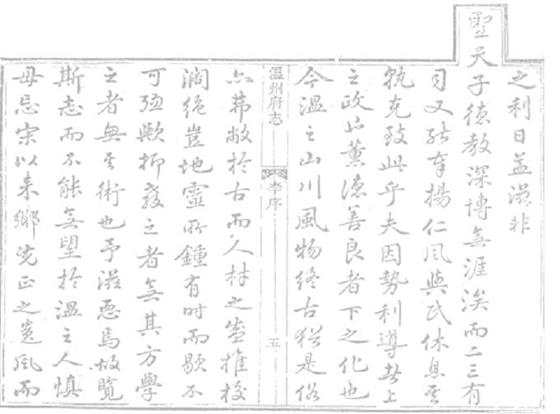 之利日益滋非
聖天子德教深博無涯涘而二三有
司又能奉揚仁風與民休息
孰克致此乎夫因勢利導者上
之政也薰德善良者下之化也
今溫之山川風物終古猶是俗
溫州府志
李序
五
亦弗敝於古而人材之盛摧
凋絕豈地靈所鍾有時而歇不
可強歟抑教之者無其方學
之者無其術也予滋恧焉故覽
斯志而不能無望於溫之人慎
毋忘宋以來鄉先正之遺風而